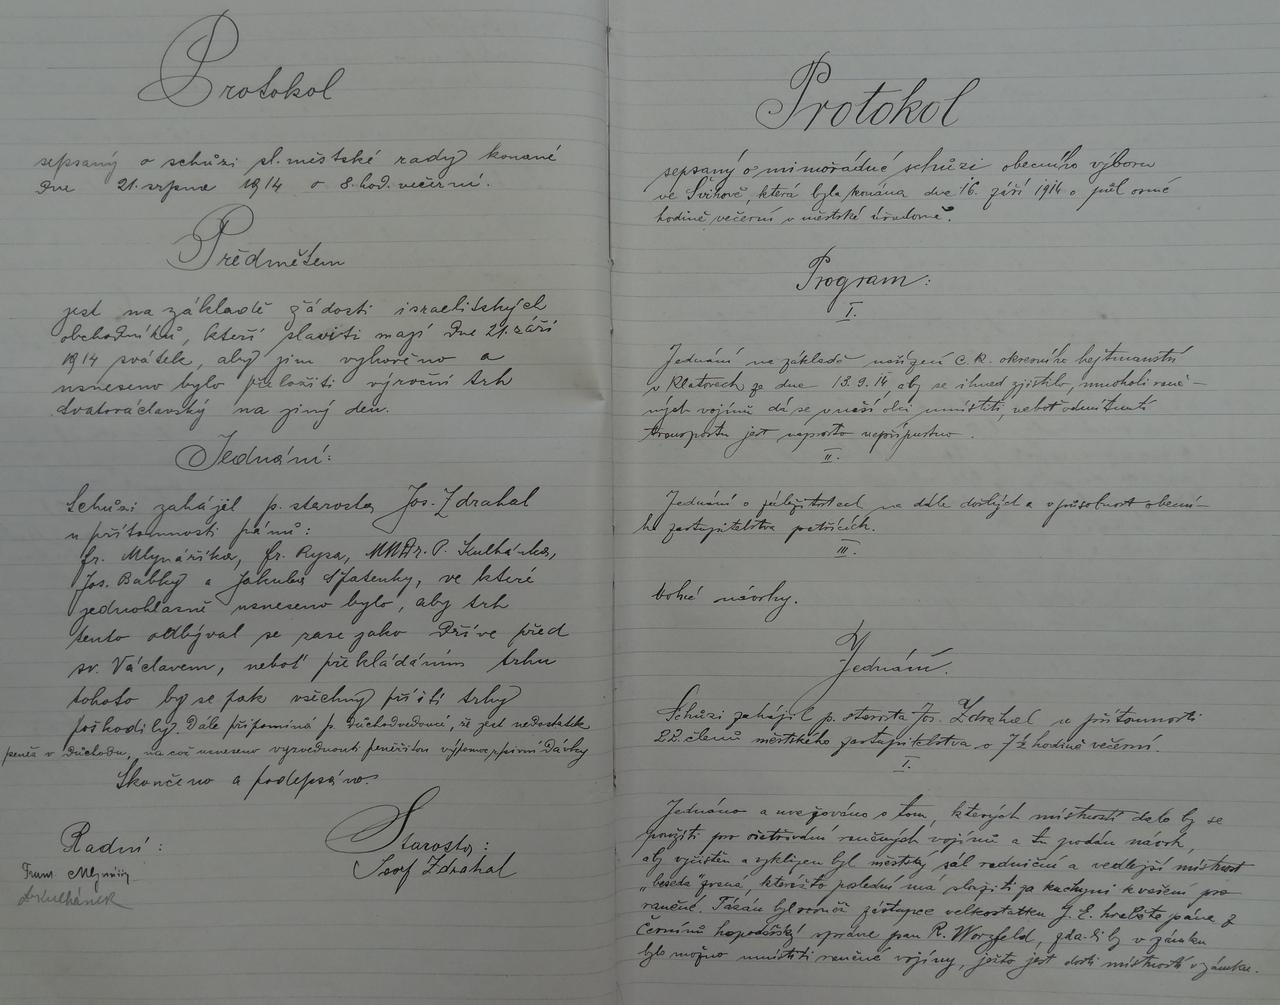 Protokol
sepsaný o schůzi sl. městské rady konané
dne 21. srpna 1914 o 8. hod. večerní.
Předmětem
jest na základě žádosti israelitských
obchodníků, kteří slaviti mají dne 21. září
1914 svátek, aby jim vyhověno a
usneseno bylo přeložiti výroční trh
svatováclavský na jiný den.
Jednání:
Schůzi zahájil p. starosta Jos. Zdrahal
u přítomnosti pánů:
Fr. Mlynáříka, Fr. Rysa, MUDr. P. Kulhánka,
Jos. Babky a Jakuba Špatenky, ve které
jednohlasně usneseno bylo, aby trh
tento odbýval se zase jako dříve před
sv. Václavem, neboť překládáním trhu
tohoto by se pak všechny příští trhy
poškodily. Dále připomíná p. důchodvedoucí, že jest nedostatek
peněz v důchodu, na což usneseno vyzvednouti peněžitou výpomoc
Skončeno a podepsáno.
Radní:
Starosta:
Frant. Mlynářík
Josef Zdrahal
Dr Kulhánek
Protokol
sepsaný o mimořádné schůzi obecního výboru
ve Švihově, která byla konána dne 16. září 1914 o půl osmé
hodině večerní v městské úřadovně.
Program:
I.
Jednání na základě nařízení c. k. okresního hejtmanství
v Klatovech ze dne 13.9.14, aby se ihned zjistilo, mnoholi raně-
ných vojínů dá se v naší obci umístiti, neboť odmítnutí
transportu jest naprosto nepřípustno.
II.
Jednání o záležitostech na dále došlých a v působnost obecní-
ho zastupitelstva patřících.
III.
Volné návrhy.
Jednání.
Schůzi zahájil p. starosta Jos. Zdrahal u přítomnosti
22. členů městského zastupitelstva o 7½ hodině večerní.
I.
Jednáno a uvažováno o tom, kterých místností dalo by se
použíti pro ošetřování raněných vojínů a tu podán návrh,
aby vyčištěn a vyklizen byl městský sál radniční a vedlejší místnost
„beseda" zvaná, kterážto poslední má sloužiti za kuchyni k vaření pro
raněné. Tázán byl rovněž zástupce velkostatku J. E. hraběte pána z
Černínů hospodářský správce pan R. Worzfeld, zda-li by v zámku
bylo možno umístiti raněné vojíny, ježto jest dosti místností v zámku.